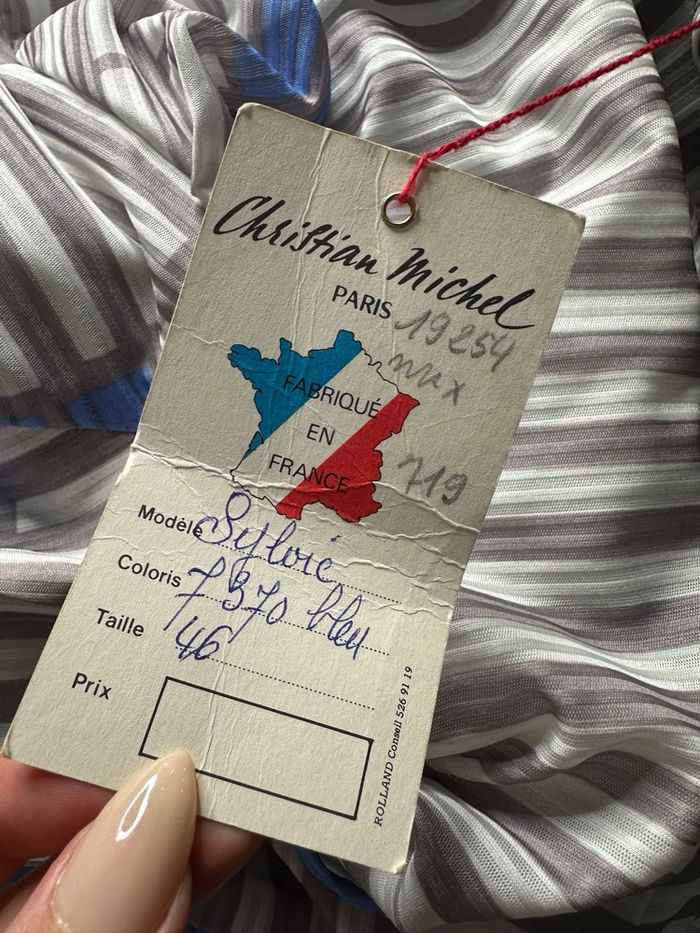 Christian Michel
PARIS
19254
FABRIQUÉ
EN
FRANCE
719
Modèle Sylvie
Coloris 7370 bleu
Taille 46
Prix
ROLLAND Conseil 526 91 19